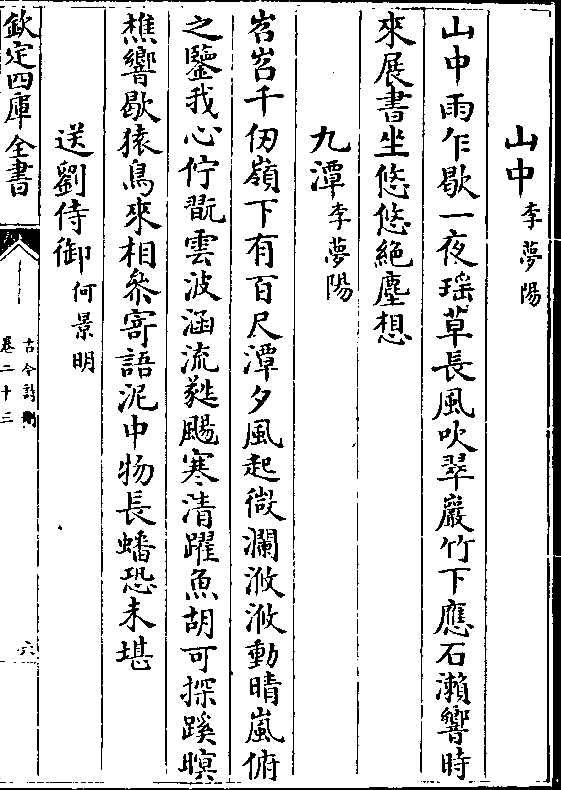 山中李夢陽
山中雨乍歇一夜瑶草長風吹翠巖竹下應石瀨響時
來展書坐悠悠絕塵想
九潭李夢陽
岧岧千仞嶺下有百尺潭夕風起微瀾滺滺動晴嵐俯
之鑒我心佇翫雲波涵流㲯颺寒清躍魚胡可探蹊暝
樵響歇猿鳥來相叅寄語泥中物長蟠恐未堪
送劉侍御何景明
欽定四庫全書
古今詩刪
卷二十三
六